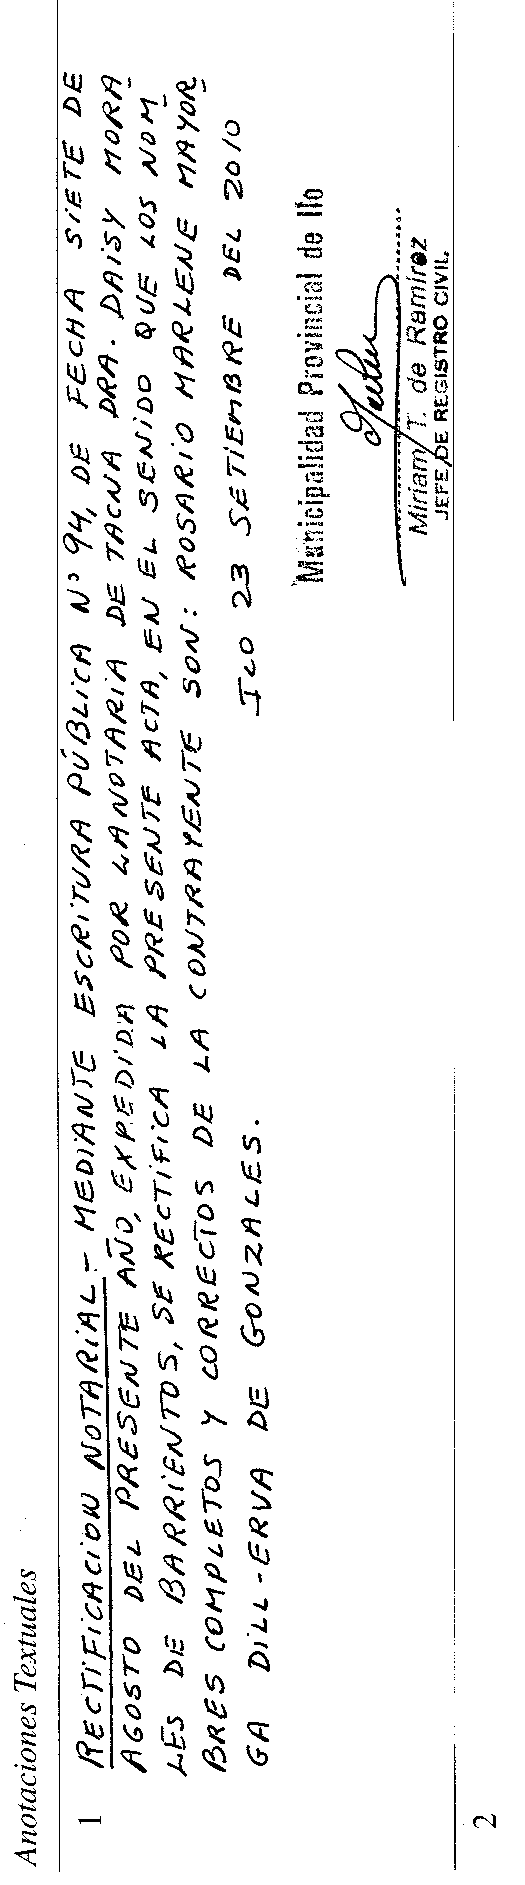 Anotaciones Textuales
1 RECTIFICACION NOTARIAL.- MEDIANTE ESCRITURA PÚBLICA N° 94, DE FECHA SIETE DE
AGOSTO DEL PRESENTE AÑO, EXPEDIDA POR LA NOTARIA DE TACNA DRA. DAISY MORA
LES DE BARRIENTOS, SE RECTIFICA LA PRESENTE ACTA, EN EL SENIDO QUE LOS NOM
BRES COMPLETOS Y CORRECTOS DE LA CONTRAYENTE SON: ROSARIO MARLENE MAYOR
GA DILL-ERVA DE GONZALES.
ILO 23 SETIEMBRE DEL 2010
Municipalidad Provincial de Ilo
Miriam T. de Ramírez
JEFE DE REGISTRO CIVIL.
2